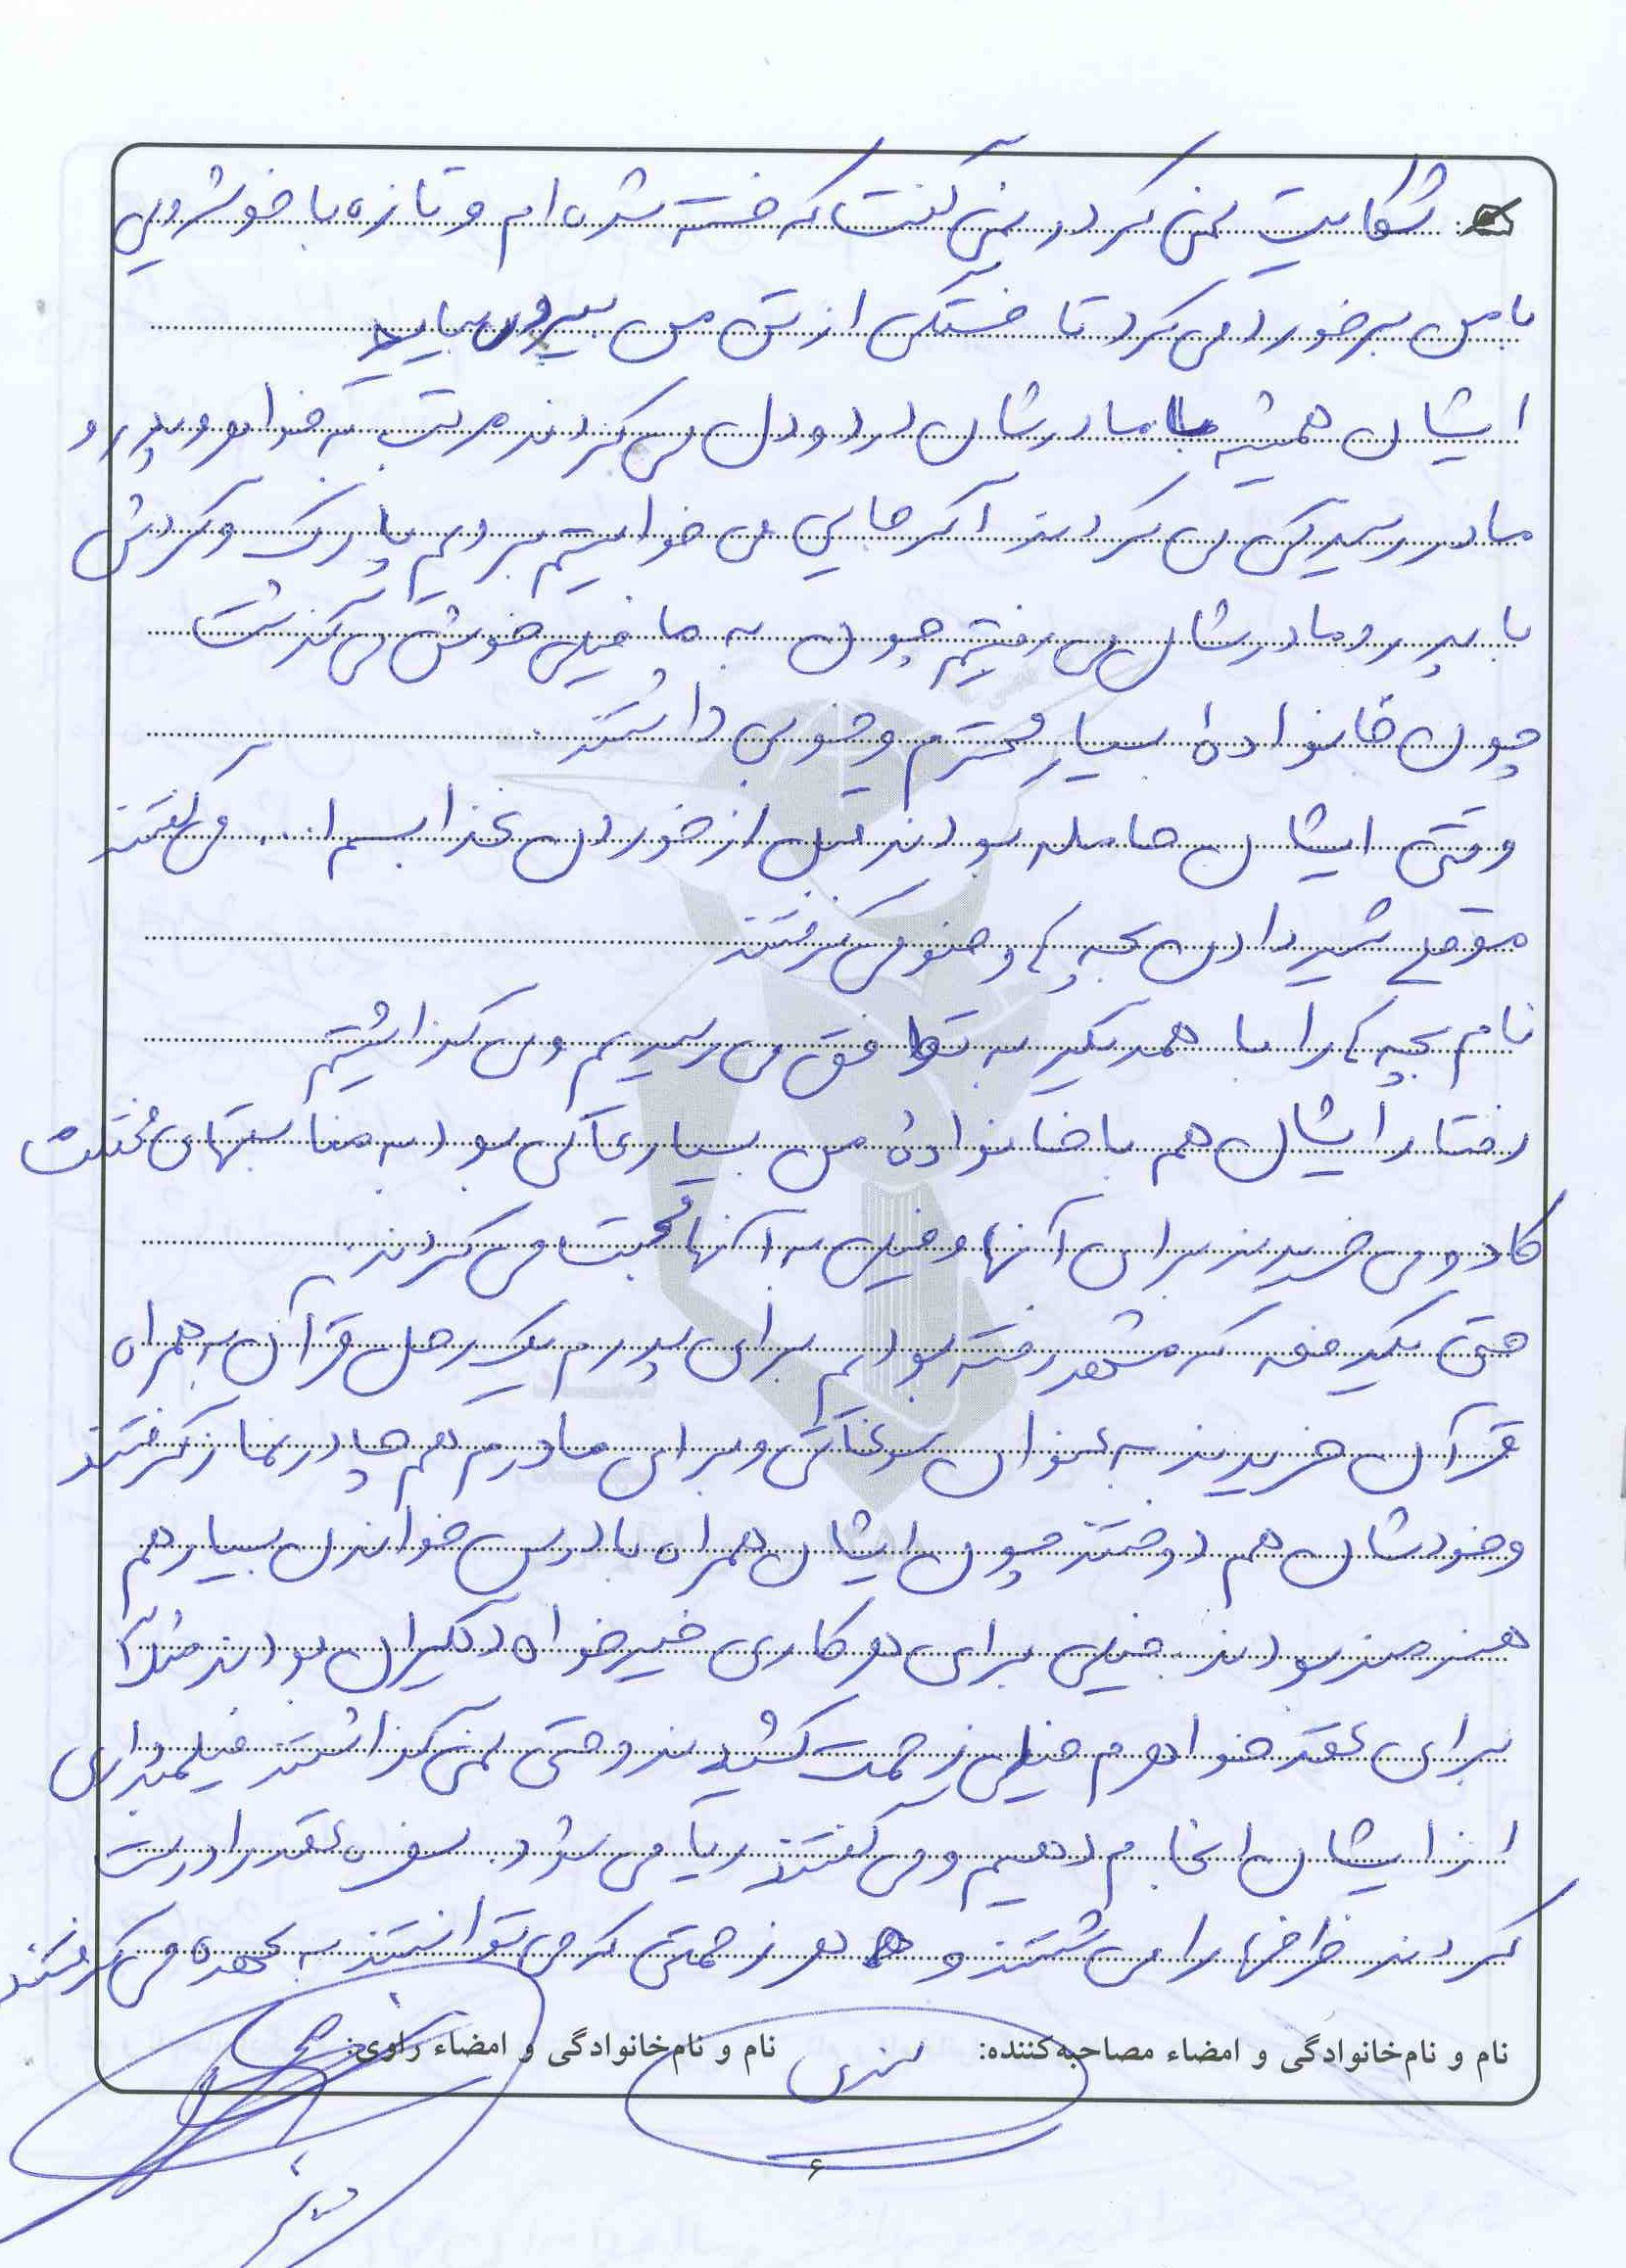 شکایت نمی کرد و نمی گفت که خسته شده ام و تازه با خوشرویی
با من برخورد می کرد تا خستگی از تن من بیرون بیاید
ایشان همیشه با مادرشان درد و دل می کردند مرتب به خواهر و پدر و
مادر رسیدگی می کردند اگر جایی می خواستیم برویم پارک و گردش
با پدر و مادرشان می رفتیم چون به ما خیلی خوش می گذشت
چون خانواده بسیار محترم و خوبی داشتند.
وقتی ایشان حامله بودند قبل از خوردن غذا بسم ا... می گفتند
موقع شیر دادن بچه ها وضو می گرفتند
نام بچه ها را با همدیگر به توافق می رسیدیم و می گذاشتیم
رفتار ایشان هم با خانواده من بسیار عالی بود به مناسبتهای مختلف
کادو می خریدند برای آنها و خیلی به آنها محبت می کردند.
حتی یکدفعه که مشهد رفته بودیم برای پدرم یک رحل قرآن به همراه
قرآن خریدند به عنوان سوغاتی و برای مادرم هم چادر نماز گرفتند
و خودشان هم دوختند چون ایشان همراه با درس خواندن بسیار هم
هنرمند بودند. خیلی برای هر کاری خیرخواه دیگران بودند مثلاً
برای عقد خواهرم خیلی زحمت کشیدند و حتی نمی گذاشتند فیلمبرداری
از ایشان انجام دهیم و می گفتند ریا می شود. سفره عقد را درست
کردند ظرفها را می شستند و هر زحمتی که می توانستند به عهده می گرفتند
نام و نام‌خانوادگی و امضاء مصاحبه‌کننده: نام و نام‌خانوادگی و امضاء راوی:
۶